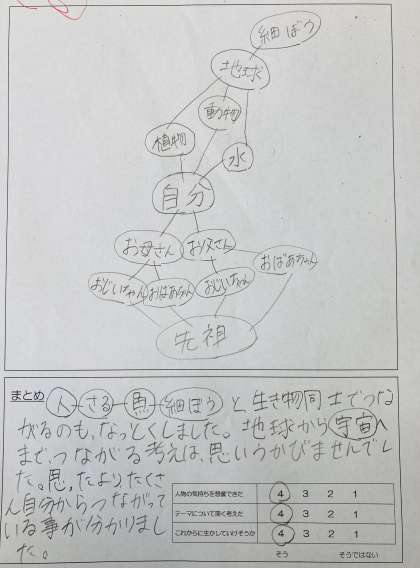 細ぼう
地球
動物
植物
水
自分
お母さん
お父さん
おばあちゃん
おじいちゃん
おばあちゃん
おじいちゃん
先祖
まとめ
人 さる 魚 細ぼう と 生き物同士でつな
がるのも、なっとくしました。地球から宇宙へ
までつながる考えは、思いうかびませんでし
た。思ったよりたくさ
ん自分からつながって
いる事が分かりまし
た。
人物の気持ちを想像できた 4 3 2 1
テーマについて深く考えた 4 3 2 1
これからに生かしていけそうか 4 3 2 1
そう そうではない